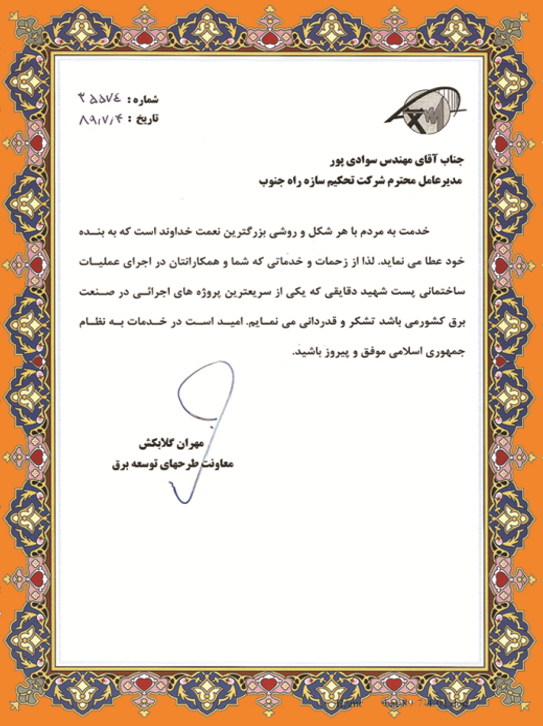 شماره : ۳۵۵۷٤
تاریخ : ۸۹/۷/۴
جناب آقای مهندس سوادی پور
مدیرعامل محترم شرکت تحکیم سازه راه جنوب
خدمت به مردم با هر شکل و روشی بزرگترین نعمت خداوند است که به بنده
خود عطا می نماید. لذا از زحمات و خدماتی که شما و همکارانتان در اجرای عملیات
ساختمانی پست شهید دقایقی که یکی از سریعترین پروژه های اجرائی در صنعت
برق کشورمی باشد تشکر و قدردانی می نمایم. امید است در خدمات به نظام
جمهوری اسلامی موفق و پیروز باشید.
مهران گلابکش
معاونت طرحهای توسعه برق